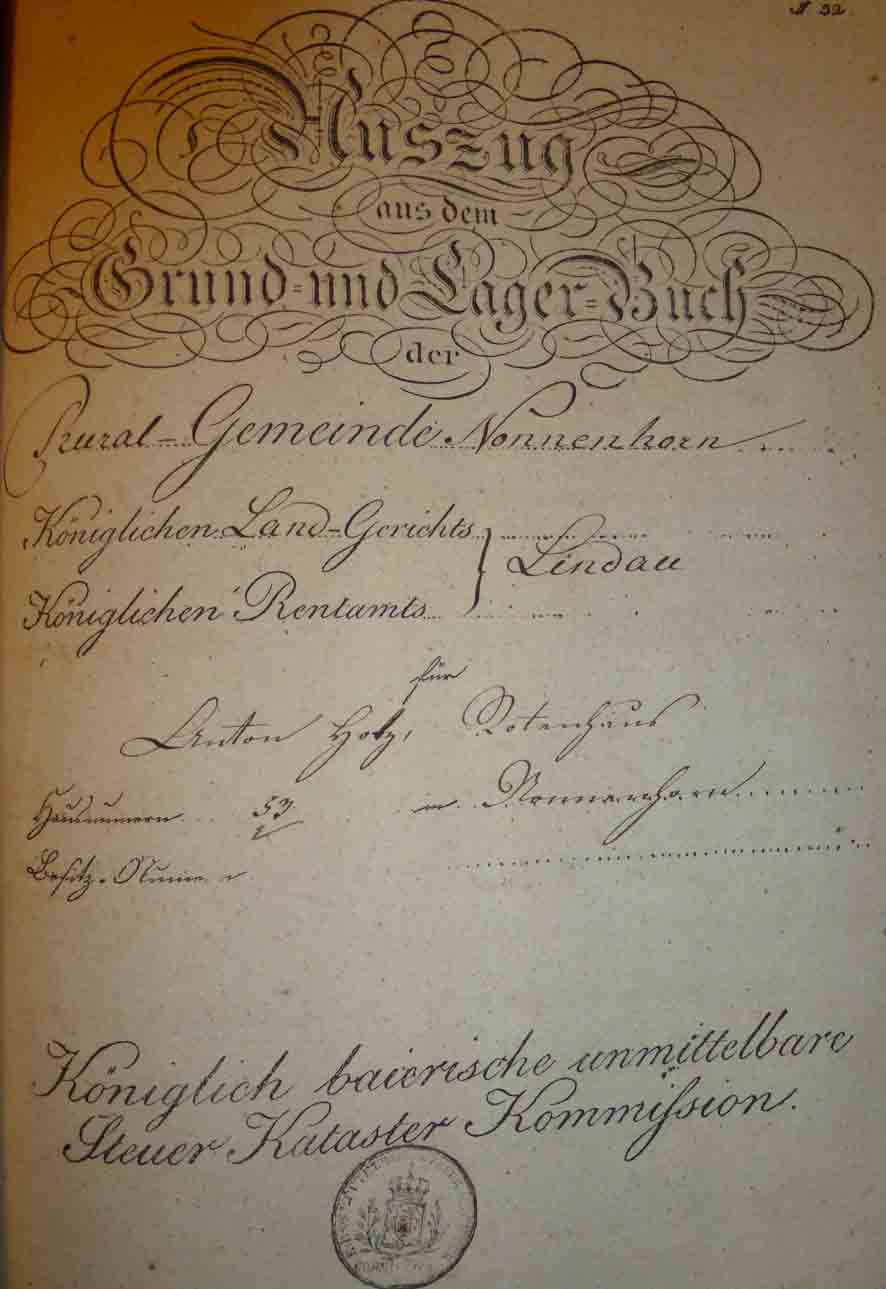 N. 32
Auszug
aus dem
Grund- und Lager-Buch
der
Rural-Gemeinde Nonnenhorn
Königlichen Land-Gerichts
Lindau
Königlichen Rentamts
für
Anton Hotz, Rotenhaus
Hausnummern 53 in Nonnenhorn
Besitz-Numer
Königlich baierische unmittelbare
Steuer Kataster Kommission.